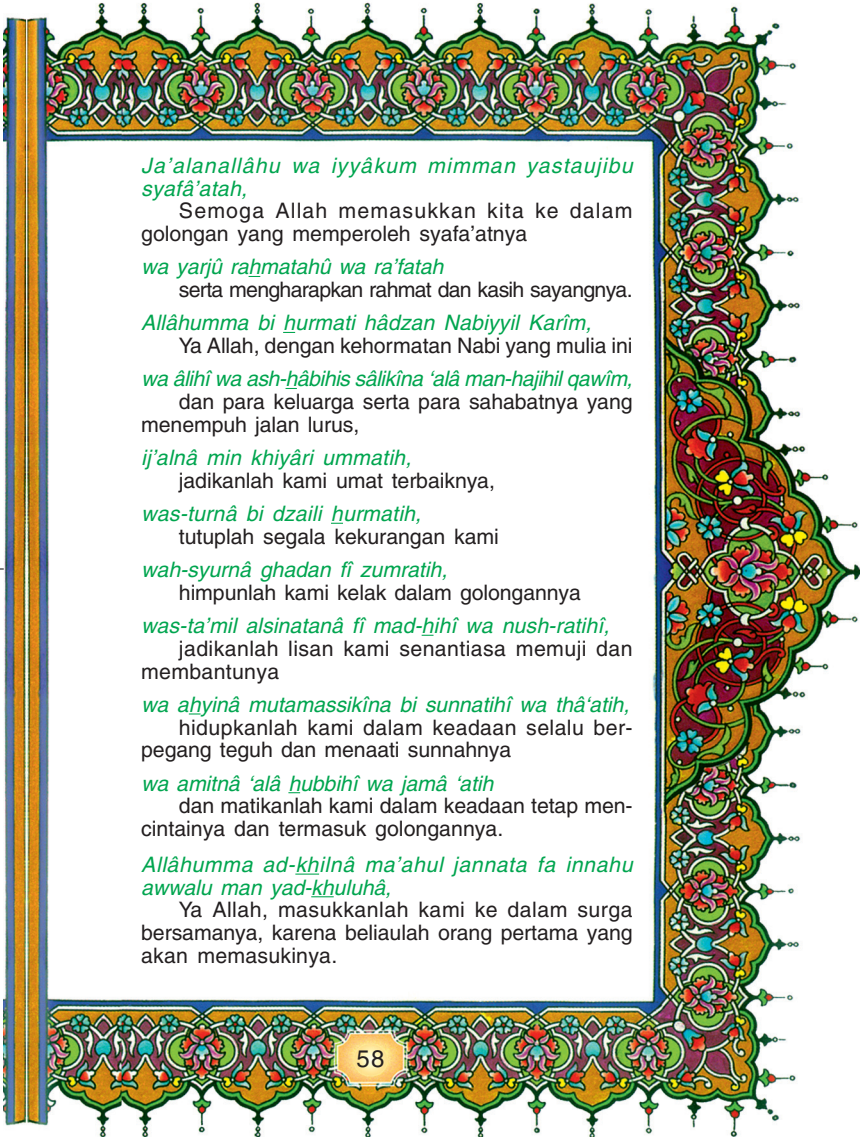 Ja’alanallâhu wa iyyâkum mimman yastaujibu
syafâ’atah,
Semoga Allah memasukkan kita ke dalam
golongan yang memperoleh syafa’atnya
wa yarjû rahmatahû wa ra’fatah
serta mengharapkan rahmat dan kasih sayangnya.
Allâhumma bi hurmati hâdzan Nabiyyil Karîm,
Ya Allah, dengan kehormatan Nabi yang mulia ini
wa âlihî wa ash-hâbihis sâlikîna ‘alâ man-hajihil qawîm,
dan para keluarga serta para sahabatnya yang
menempuh jalan lurus,
ij’alnâ min khiyâri ummatih,
jadikanlah kami umat terbaiknya,
was-turnâ bi dzaili hurmatih,
tutuplah segala kekurangan kami
wah-syurnâ ghadan fî zumratih,
himpunlah kami kelak dalam golongannya
was-ta’mil alsinatanâ fî mad-hihî wa nush-ratihî,
jadikanlah lisan kami senantiasa memuji dan
membantunya
wa ahyinâ mutamassikîna bi sunnatihî wa thâ‘atih,
hidupkanlah kami dalam keadaan selalu ber-
pegang teguh dan menaati sunnahnya
wa amitnâ ‘alâ hubbihî wa jamâ ‘atih
dan matikanlah kami dalam keadaan tetap men-
cintainya dan termasuk golongannya.
Allâhumma ad-khilnâ ma’ahul jannata fa innahu
awwalu man yad-khuluhâ,
Ya Allah, masukkanlah kami ke dalam surga
bersamanya, karena beliaulah orang pertama yang
akan memasukinya.
58